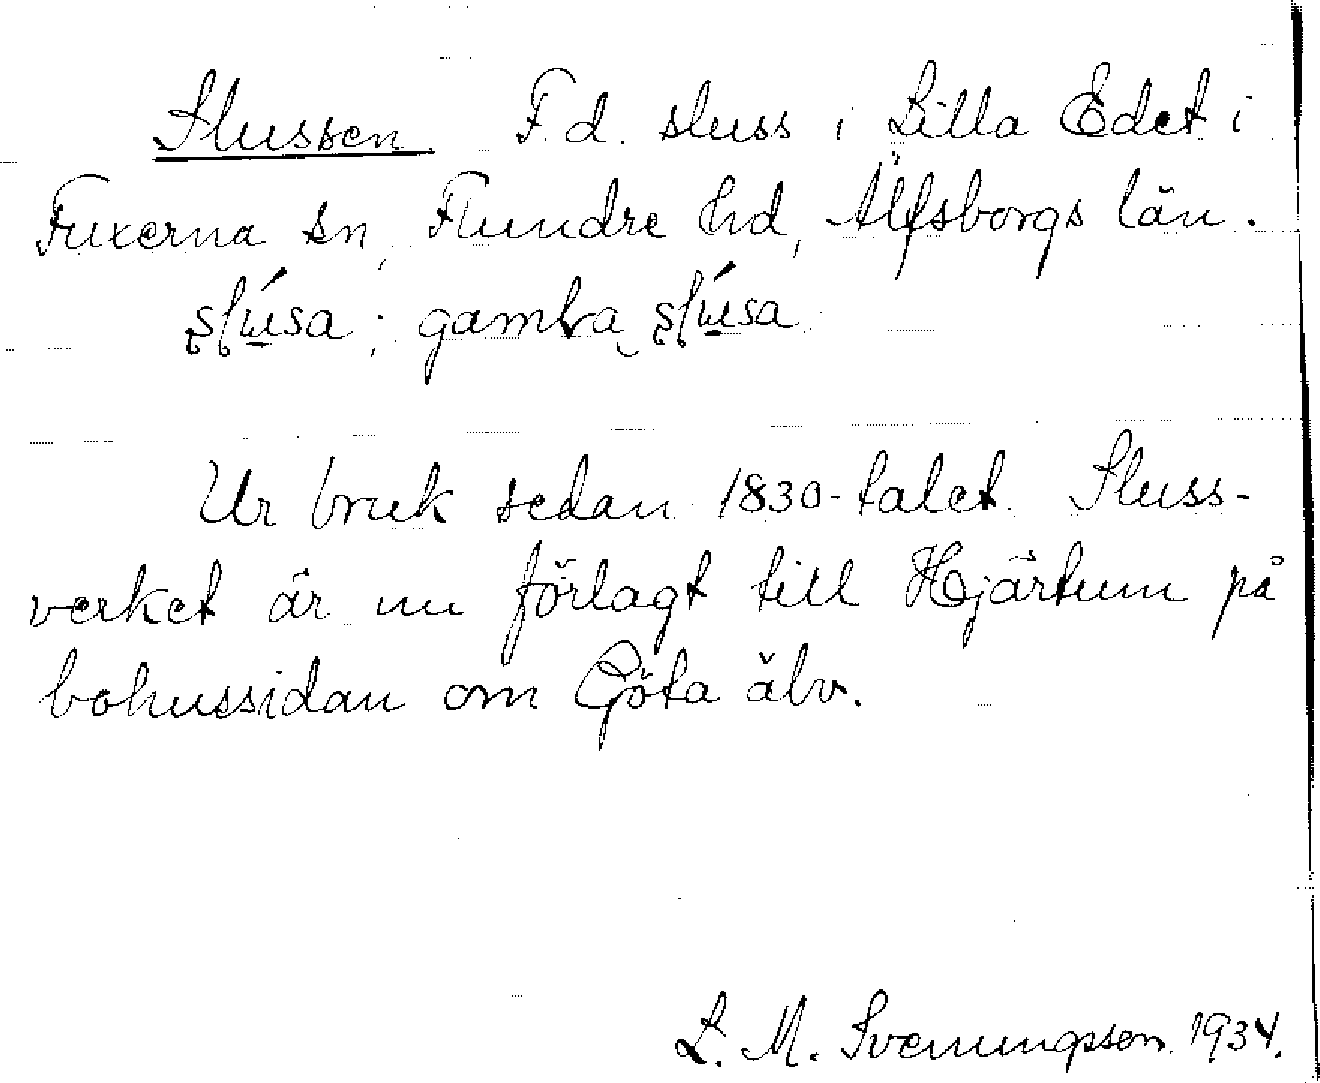 Slussen F.d. sluss i Lilla Edet i
Fuxerna sn, Flundre hd, Älfsborgs län.
slusa; gamla slusa
Ur bruk sedan 1830-talet. Sluss-
verket är nu förlagt till Hjärtum på
bohussidan om Göta älv.
L. M. Svenungsson 1934.